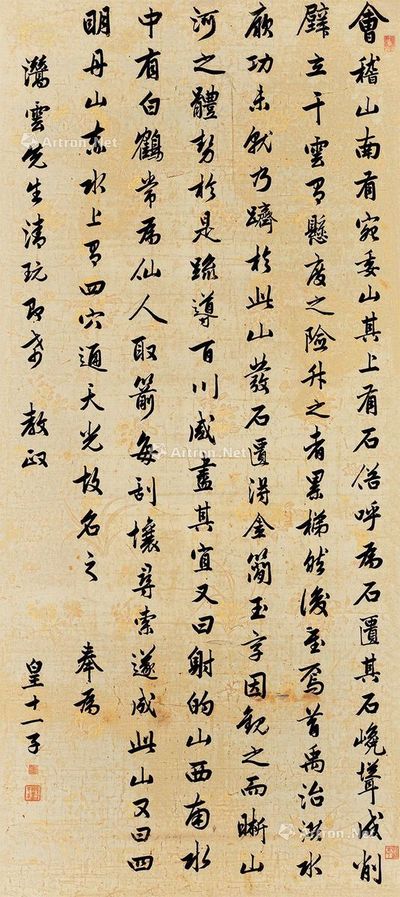 會稽山南有宛委山其上有石俗呼為石匱其石巉聳成削
壁立干雲有懸度之險升之者累梯然後至焉昔禹治洪水
厥功未就乃躋於此山發石匱得金簡玉字因觀之而晰山
河之體勢於是疏導百川咸盡其宜又曰射的山西南水
中有白鶴常為仙人取箭每刮壤尋索遂成此山又曰四
明丹山赤水上有四穴通天光故名之 奉為
雲先生清玩即希 教政
皇十一子
Artron.Net
Artron.Net
Artron.Net
Artron.Net